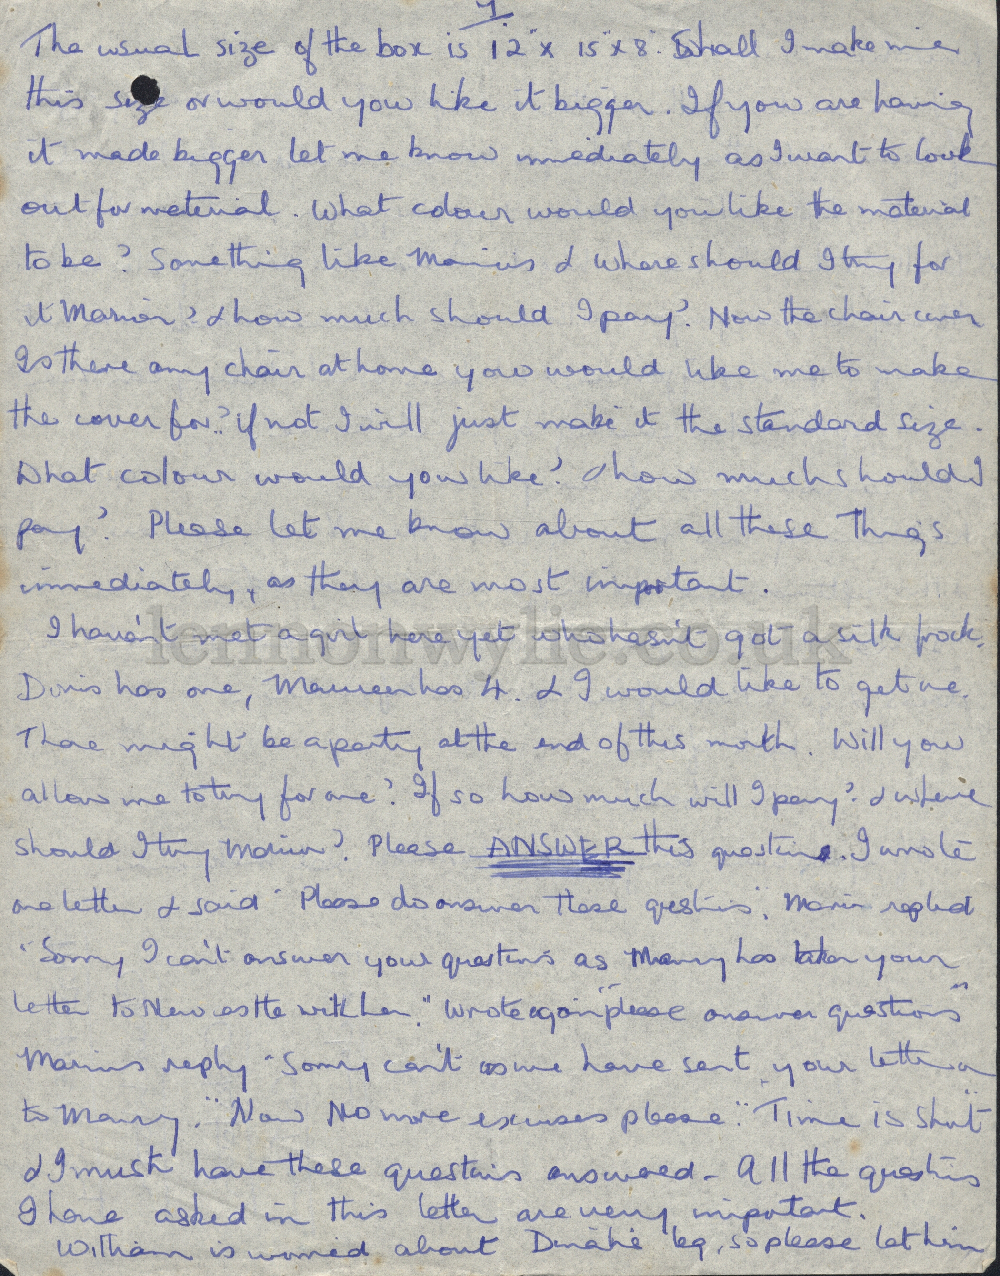 4
The usual size of the box is 12" x 15" x 8". Shall I make mine
this size or would you like it bigger. If you are having
it made bigger let me know immediately as I want to look
out for material. What colour would you like the material
to be? Something like Marion's & where should I try for
it Marion? & how much should I pay? Now the chair cover
Is there any chair at home you would like me to make
the cover for? if not I will just make it the standard size.
What colour would you like? & how much should I
pay? Please let me know about all these Things
immediately, as they are most important.
I haven't met a girl here yet who hasn't got a silk frock.
Doris has one, Maureen has 4. & I would like to get one.
There might be a party at the end of this month. Will you
allow me to try for one? If so how much will I pay? & where
should I try Marion? Please ANSWER this question. I wrote
one letter & said "Please do answer these questions". Marion replied
"Sorry I can't answer your questions as Mammy has taken your
letter to Newcastle with her." Wrote again "please answer questions"
Marion's reply "Sorry can't as we have sent your letter on
to Mammy." Now No more excuses please." Time is short"
& I must have these questions answered - All the questions
I have asked in this letter are very important.
William is worried about leg, so please let him
lennonwylie.co.uk